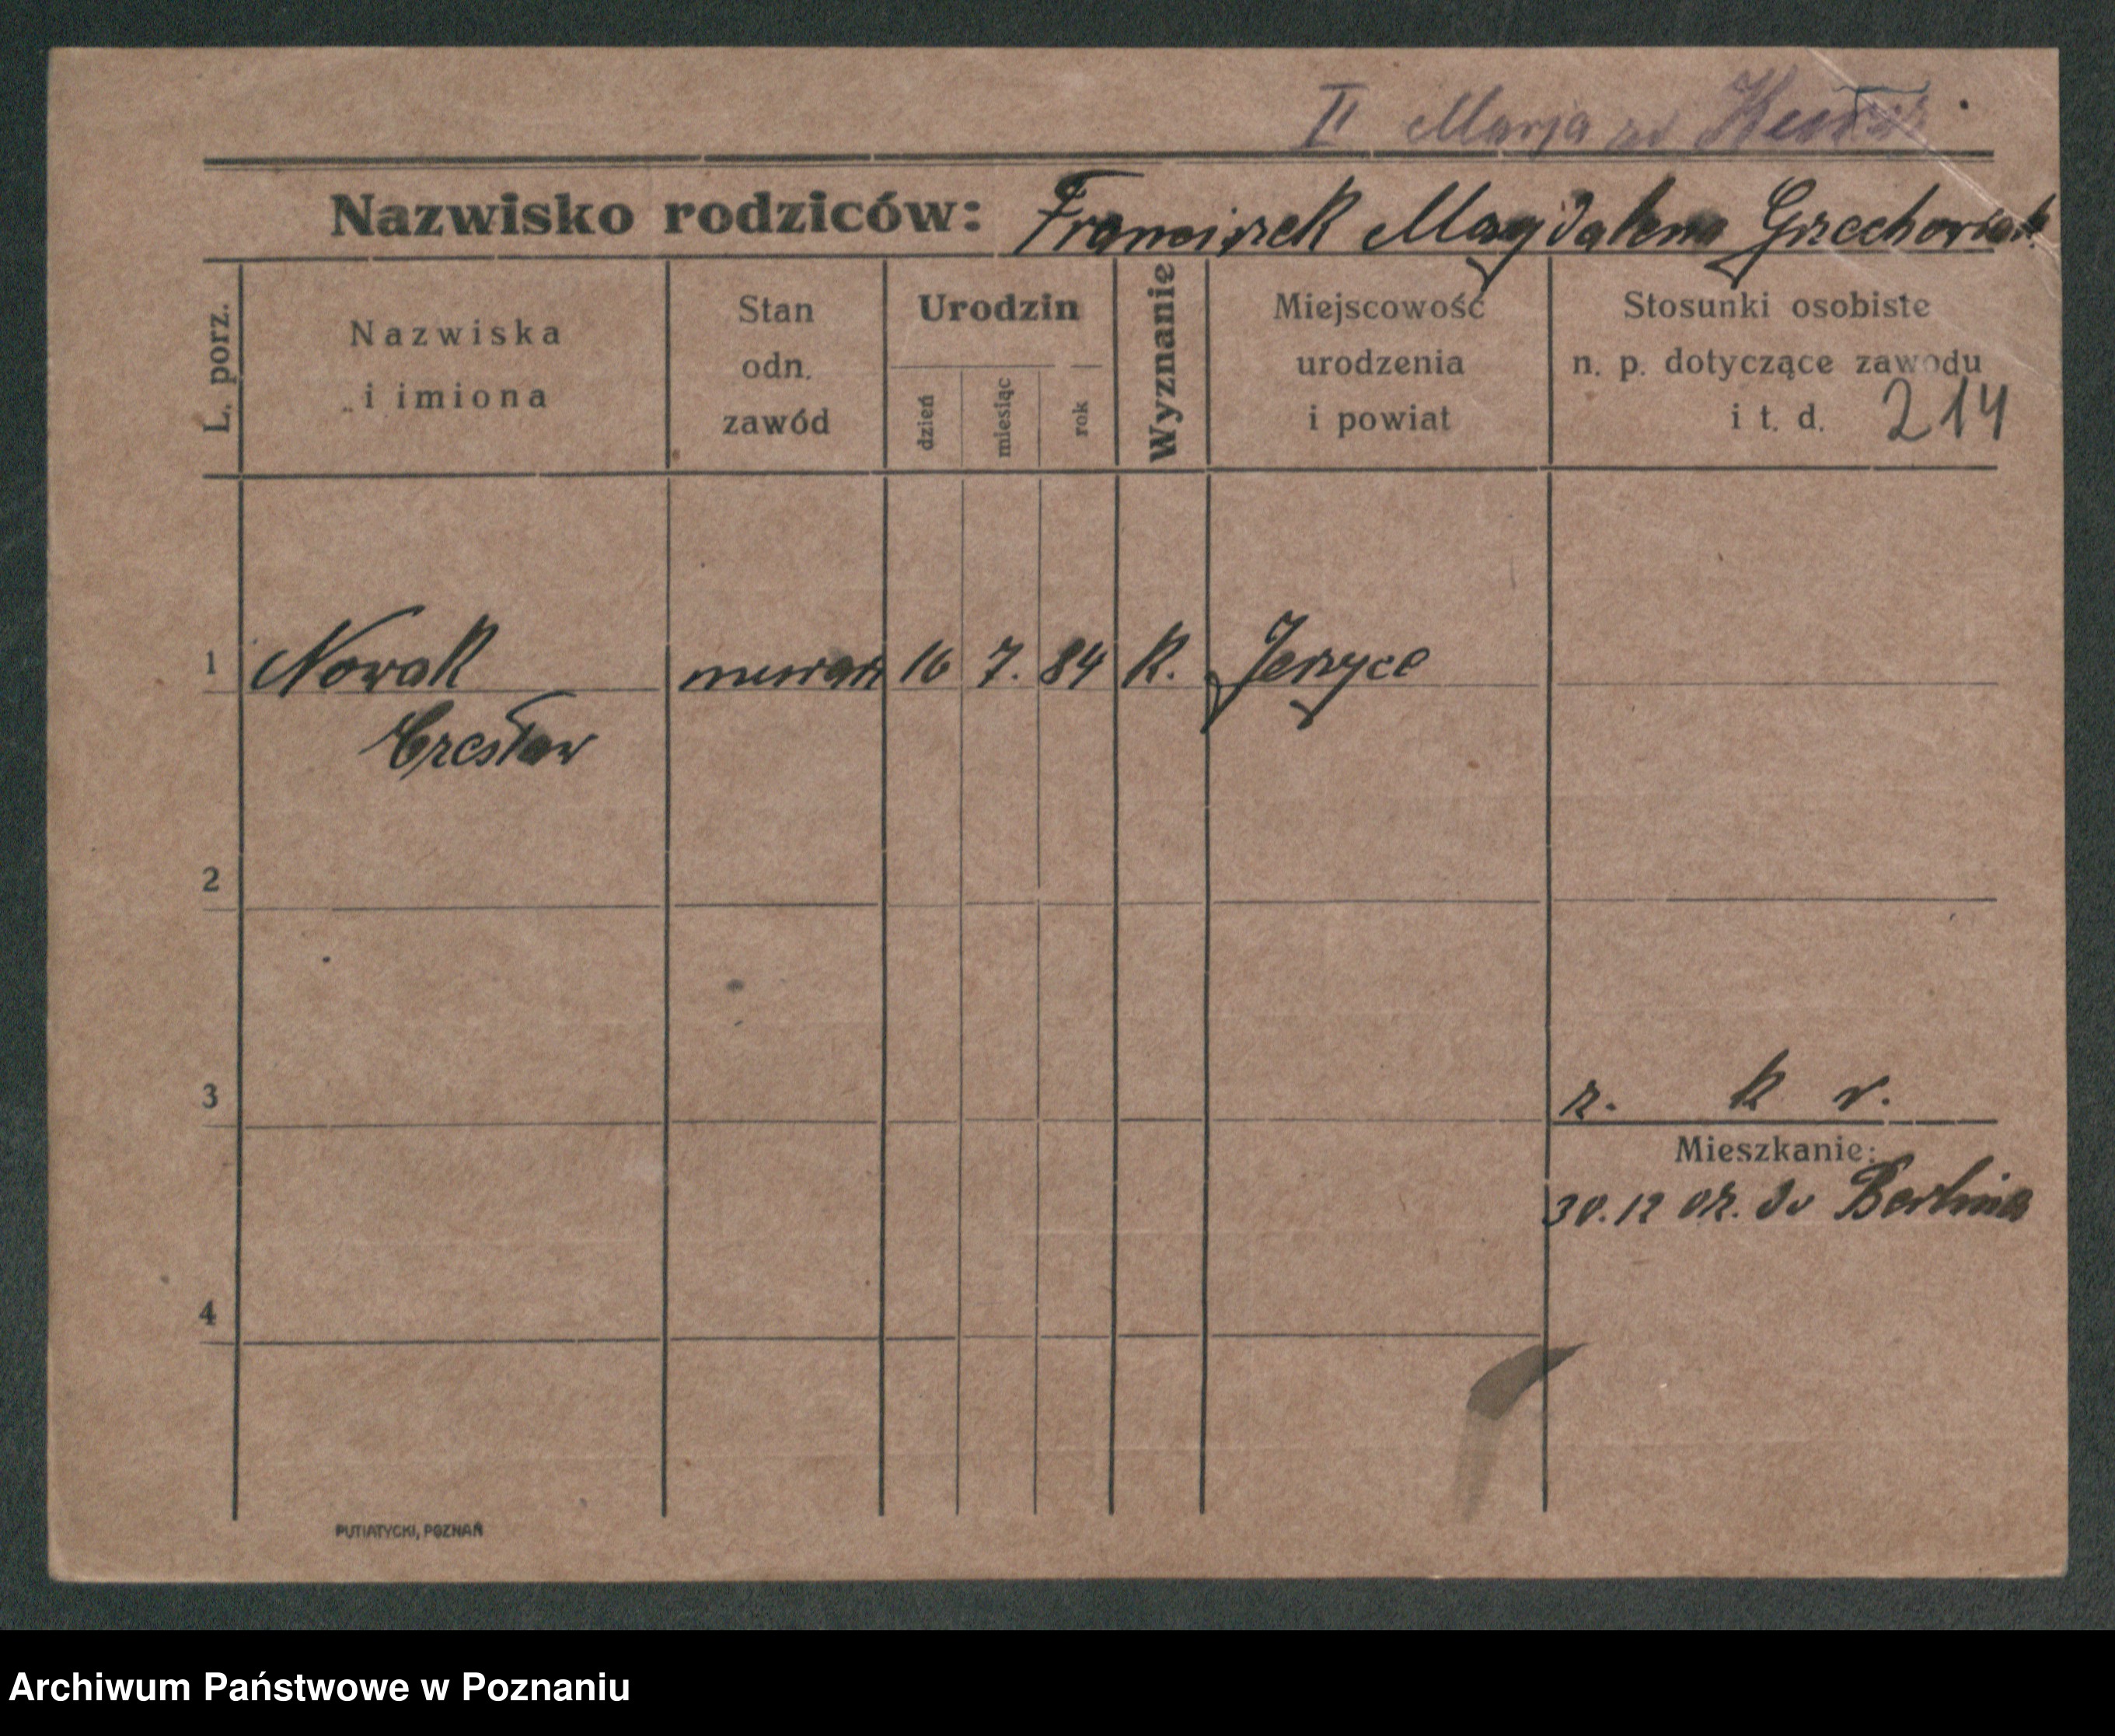 II Marja
Nazwisko rodziców: Franciszek Magdalena Grzechowiak
L. porz.
Nazwiska i imiona
Stan odn. zawód
Urodzin
dzień
miesiąc
rok
Wyznanie
Miejscowość urodzenia i powiat
Stosunki osobiste n. p. dotyczące zawodu i t. d. 214
1 Nowak murarz 16 7. 84 k. Jeżyce
Czesław
2
3
r. k v.
Mieszkanie:
30.12 02. do Berlina
4
PUTIATYCKI, POZNAŃ
Archiwum Państwowe w Poznaniu